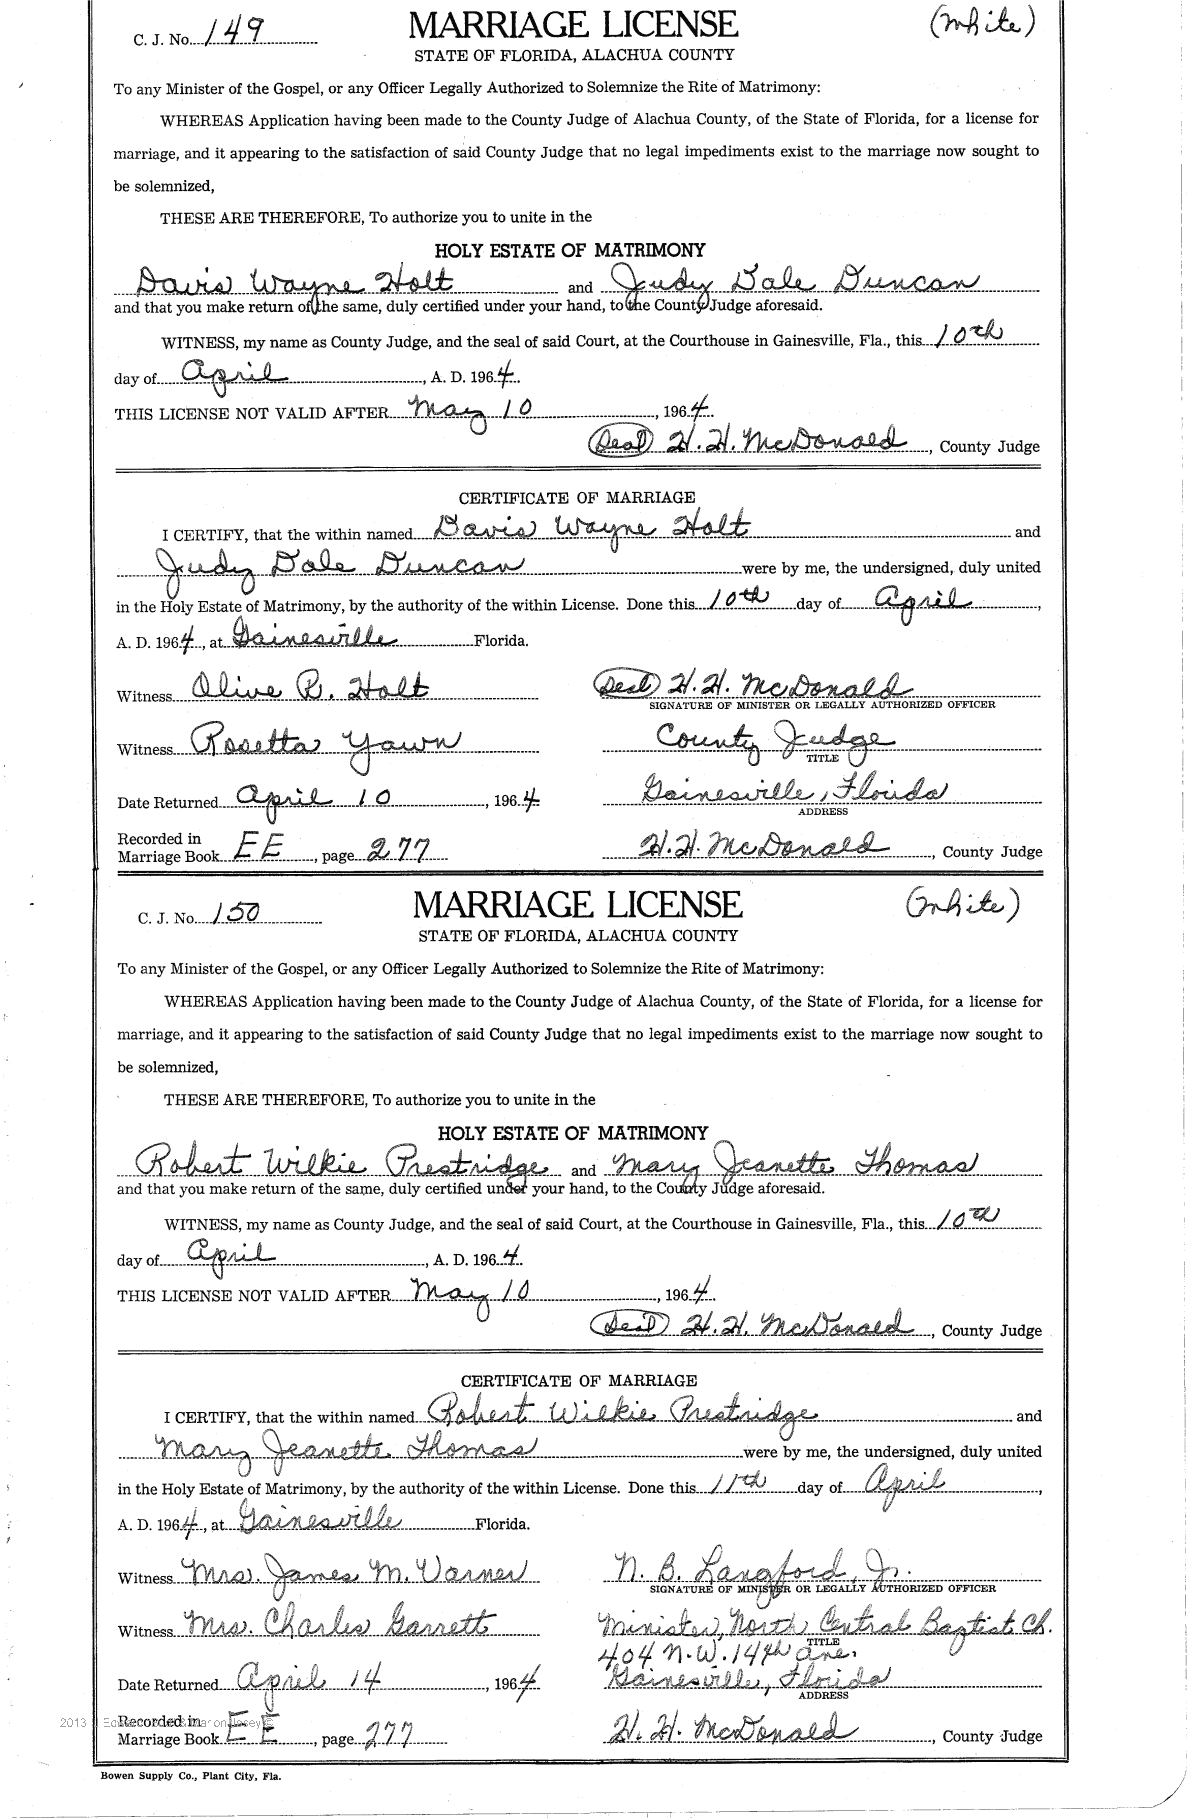 C. J. No. 149
MARRIAGE LICENSE
(White)
STATE OF FLORIDA, ALACHUA COUNTY
To any Minister of the Gospel, or any Officer Legally Authorized to Solemnize the Rite of Matrimony:
WHEREAS Application having been made to the County Judge of Alachua County, of the State of Florida, for a license for
marriage, and it appearing to the satisfaction of said County Judge that no legal impediments exist to the marriage now sought to
be solemnized,
THESE ARE THEREFORE, To authorize you to unite in the
HOLY ESTATE OF MATRIMONY
Davis Wayne Holt and Judy Dale Duncan
and that you make return of the same, duly certified under your hand, to the County Judge aforesaid.
WITNESS, my name as County Judge, and the seal of said Court, at the Courthouse in Gainesville, Fla., this 10th
day of April, A. D. 1964.
THIS LICENSE NOT VALID AFTER May 10, 1964.
(Seal) H. H. McDonald, County Judge
CERTIFICATE OF MARRIAGE
I CERTIFY, that the within named Davis Wayne Holt and
Judy Dale Duncan were by me, the undersigned, duly united
in the Holy Estate of Matrimony, by the authority of the within License. Done this 10th day of April,
A. D. 1964, at Gainesville Florida.
Witness Olive R. Holt
(Seal) H. H. McDonald
SIGNATURE OF MINISTER OR LEGALLY AUTHORIZED OFFICER
Witness Rosetta Yawn
County Judge
TITLE
Date Returned April 10, 1964
Gainesville, Florida
ADDRESS
Recorded in
Marriage Book EE, page 277
H. H. McDonald, County Judge
C. J. No. 150
MARRIAGE LICENSE
(White)
STATE OF FLORIDA, ALACHUA COUNTY
To any Minister of the Gospel, or any Officer Legally Authorized to Solemnize the Rite of Matrimony:
WHEREAS Application having been made to the County Judge of Alachua County, of the State of Florida, for a license for
marriage, and it appearing to the satisfaction of said County Judge that no legal impediments exist to the marriage now sought to
be solemnized,
THESE ARE THEREFORE, To authorize you to unite in the
HOLY ESTATE OF MATRIMONY
Robert Wilkie Prestridge and Mary Jeanette Thomas
and that you make return of the same, duly certified under your hand, to the County Judge aforesaid.
WITNESS, my name as County Judge, and the seal of said Court, at the Courthouse in Gainesville, Fla., this 10th
day of April, A. D. 1964.
THIS LICENSE NOT VALID AFTER May 10, 1964.
(Seal) H. H. McDonald, County Judge
CERTIFICATE OF MARRIAGE
I CERTIFY, that the within named Robert Wilkie Prestridge and
Mary Jeanette Thomas were by me, the undersigned, duly united
in the Holy Estate of Matrimony, by the authority of the within License. Done this 11th day of April,
A. D. 1964, at Gainesville Florida.
Witness Mrs. James M. Varner
N. B. Langford, Jr.
SIGNATURE OF MINISTER OR LEGALLY AUTHORIZED OFFICER
Witness Mrs. Charles Garrett
Minister, North Central Baptist Ch.
TITLE
404 N.W. 14th Ave.
Date Returned April 14, 1964
Gainesville, Florida
ADDRESS
2013
Recorded in
Marriage Book EE, page 277
H. H. McDonald, County Judge
Bowen Supply Co., Plant City, Fla.